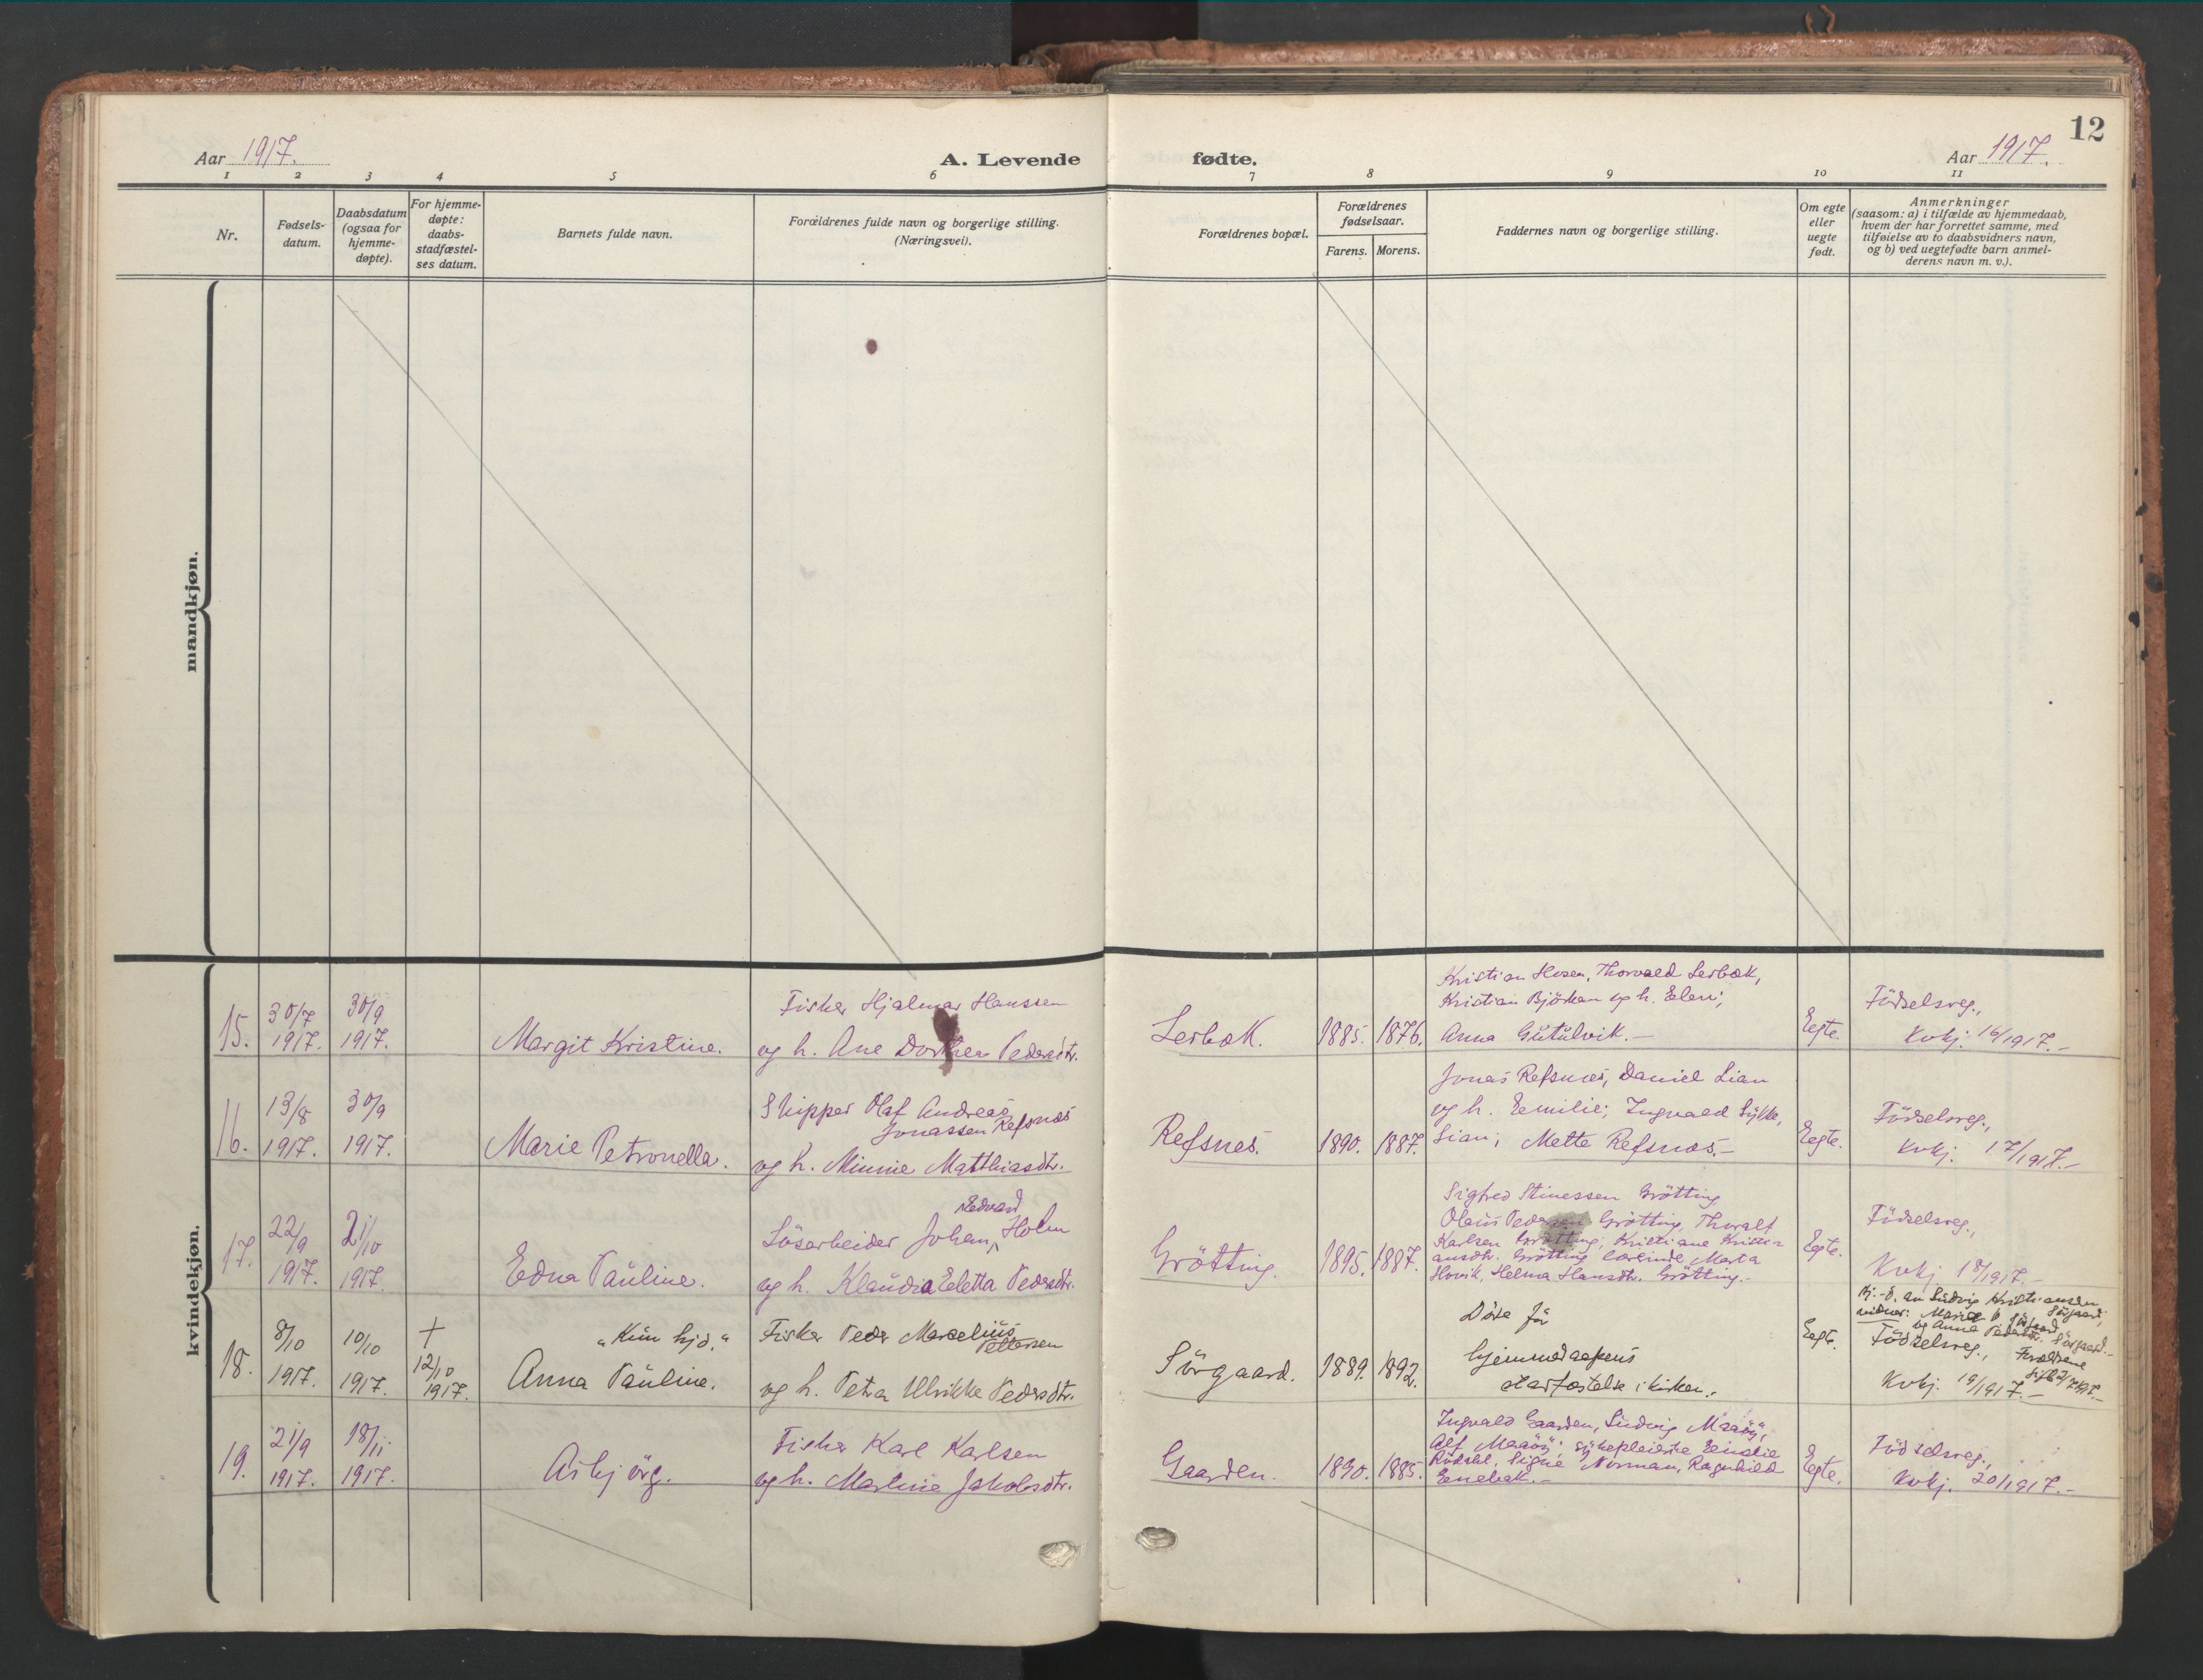 12
Aar 1917.
A. Levende
fødte.
Aar 1917.
1 2 3 4 5 6 7 8 9 10 11
Nr.
Fødsels-
datum.
Daabsdatum
(ogsaa for
hjemme-
døpte).
For hjemme-
døpte:
daabs-
stadfæstel-
ses datum.
Barnets fulde navn.
Forældrenes fulde navn og borgerlige stilling.
(Næringsvei).
Forældrenes bopæl.
Forældrenes
fødselsaar.
Farens. Morens.
Faddernes navn og borgerlige stilling.
Om egte
eller
uegte
født.
Anmerkninger
(saasom: a) i tilfælde av hjemmedaab,
hvem der har forrettet samme, med
tilføielse av to daabsvidners navn,
og b) ved uegtefødte barn anmel-
derens navn m. v.).
mandkjøn.
kvindekjøn.
15.
30/7
1917.
30/9
1917.
Margit Kristine.
Fisker Hjalmar Hanssen
og h. Ane Dorthea Pedersdtr.
Lerbæk.
1885. 1876.
Kristian Hosen, Thorvald Lerbæk,
Kristian Björkan og h. Elen;
Anna Gutulvik.-
Egte.
Födselsreg.,
Kvkj. 16/1917.-
16.
13/8
1917.
30/9
1917.
Marie Petronella.
Skipper Olaf Andreas
Jonassen Refsnæs
og h. Minnie Matthiasdtr.
Refsnes.
1890. 1887.
Jonas Refsnæs, Daniel Lian
og h. Emilie; Ingvald
Lian; Mette Refsnæs.-
Egte.
Födselsreg.,
Kvkj. 17/1917.-
17.
22/9
1917.
21/10
1917.
Edna Pauline.
Edvard
Lösarbeider Johan Holm
og h. Klaudia Eletta Pedersdtr.
Grötting.
1895. 1887.
Sigfred Stinessen Grötting
Olaus Pedersen Grötting, Thoralf
Karlsen Grötting; Kristiane Kristi-
ansdtr. Grötting, lærerinde Marta
Hovik, Helma Hansdtr. Grötting.-
Egte.
Födselsreg.,
Kvkj. 18/1917.-
18.
8/10
1917.
10/10
1917.
+
12/10
1917.
"Kun hjd."
Anna Pauline.
Fisker Peder Marselius
Pettersen
og h. Petra Ulrikke Pedersdtr.
Sörgaard.
1889. 1892.
Döde för
hjemmedaapens
stadfæstelse i kirken.
Egte.
Hj.-d. av Ludvig Kristiansen
Sörgaard,
vidner:
og Anna Pedersdtr. Sörgaard.-
Födselsreg., Forældrene
Kvkj. 19/1917.-
19.
21/9
1917.
18/11
1917.
Asbjörg.
Fisker Karl Karlsen
og h. Martine Jakobsdtr.
Gaarden.
1890. 1885.
Ingvald Gaarden, Ludvig Maaöy,
Alf Maaöy; sykepleierske Emelie
Signe Norman, Ragnhild
Enebak.-
Egte.
Födselsreg.,
Kvkj. 20/1917.-